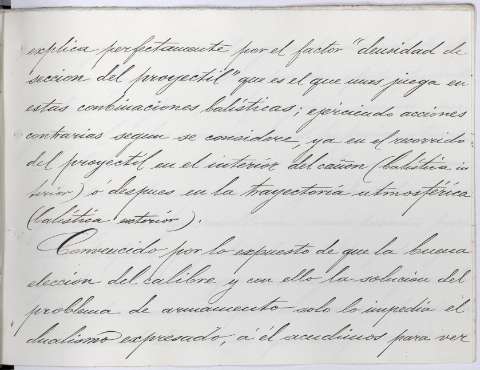 explica perfectamente por el factor "densidad de
seccion del proyectil" que es el que mas juega en
estas combinaciones balísticas; ejerciendo acciones
contrarias segun se considere, ya en el recorrido
del proyectil en el interior del cañon (balística in
terior) ó despues en la trayectoria atmosférica
(balística exterior).
Convencido por lo expuesto de que la buena
eleccion del calibre y con ello la solucion del
problema de armamento solo lo impedia el
dualismo expresado, á él acudimos para ver